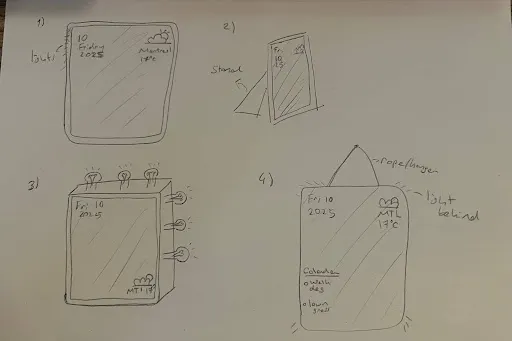 1)
10
Friday
2025
Montreal
17°C
lights
2)
Fri
10
Stand
3)
Fri 10
2025
MTL 17°
4)
rope/hanger
light
behind
Fri 10
2025
MTL
17°C
Calendar
o Walk
dog
o lawn